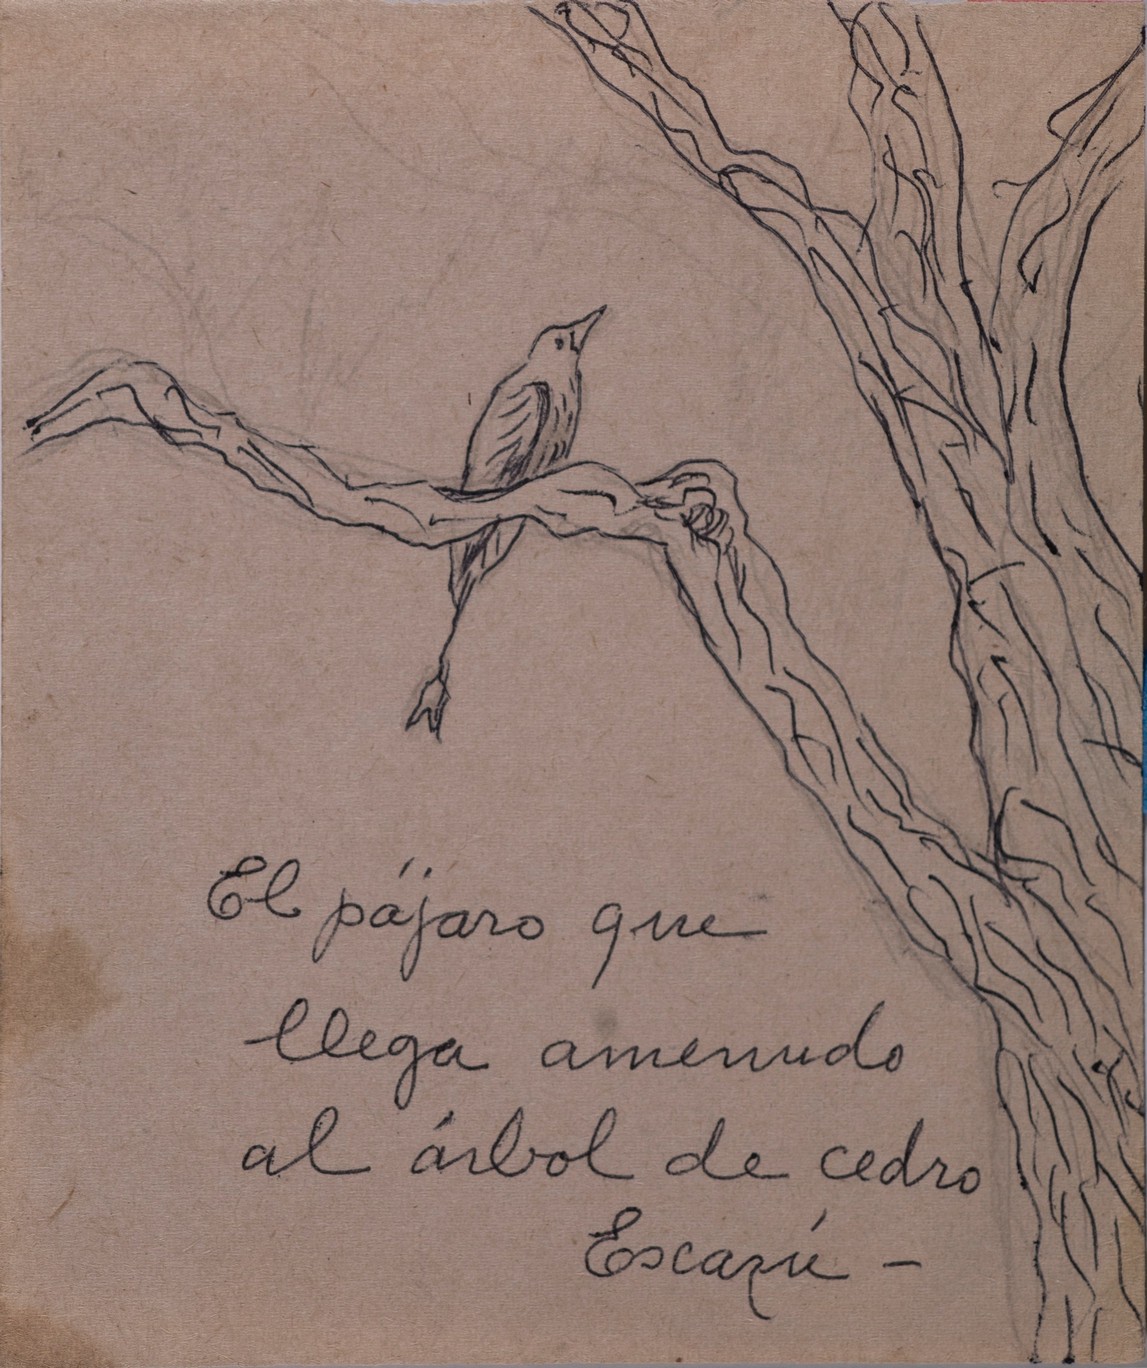 El pájaro que
llega amenudo
al árbol de cedro
Escazú –